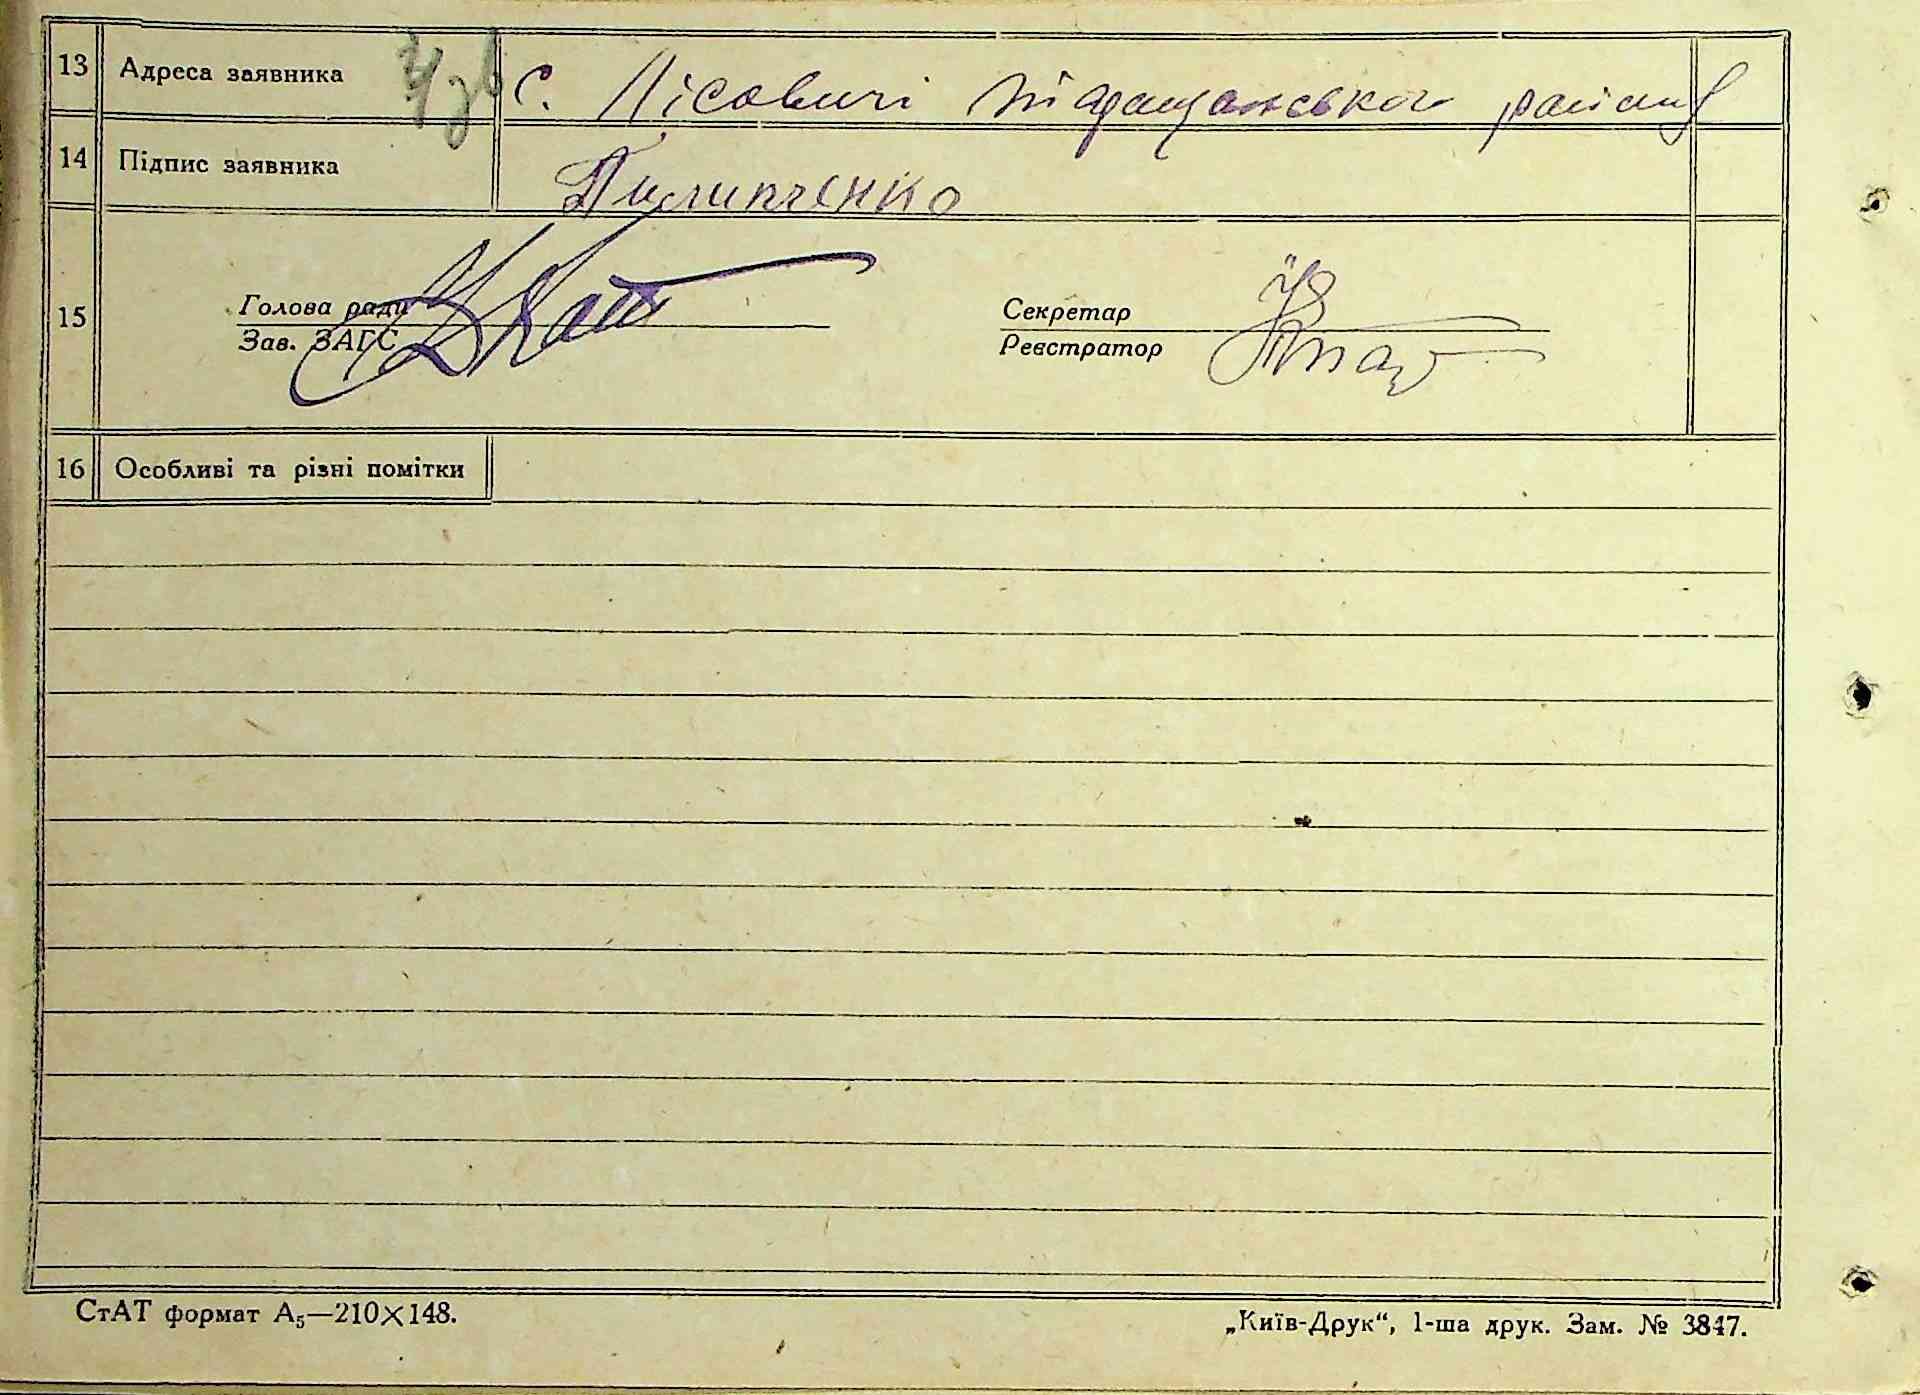 13 Адреса заявника с. Лісовичі Таращанського району
14 Підпис заявника Пилипченко
15 Голова ради Секретар
Зав. ЗАГС Реєстратор
16 Особливі та різні помітки
СтАТ формат А₅—210×148. „Київ-Друк“, 1-ша друк. Зам. № 3847.